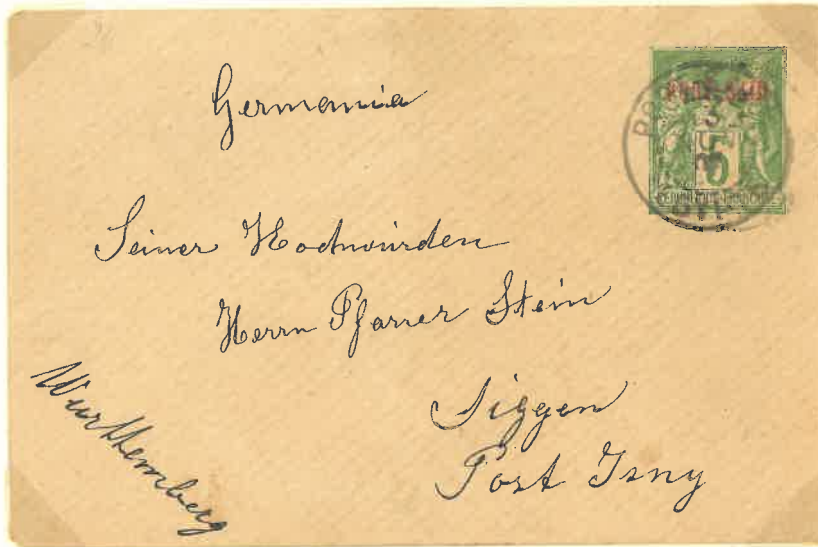 Germania
PORT-SAID
5
REPUBLIQUE FRANCAISE
Seiner Hochwürden
Herrn Pfarrer Stein
Siggen
Post Isny
Württemberg